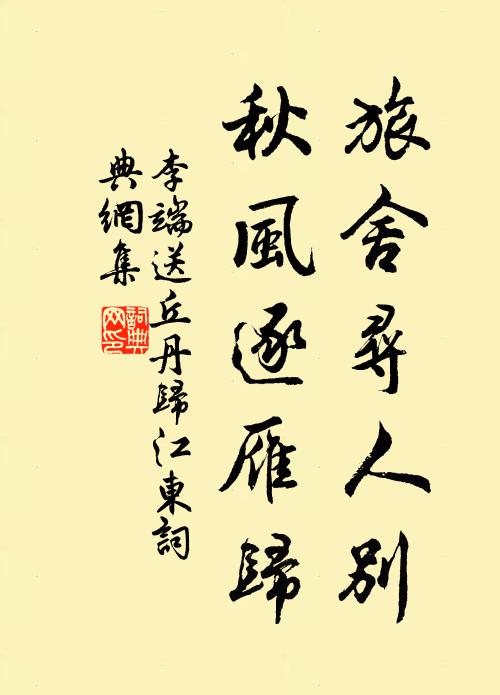 旅舍尋人別
秋風逐雁歸
李端送丘丹歸江東詞
典網集
詞典
网印